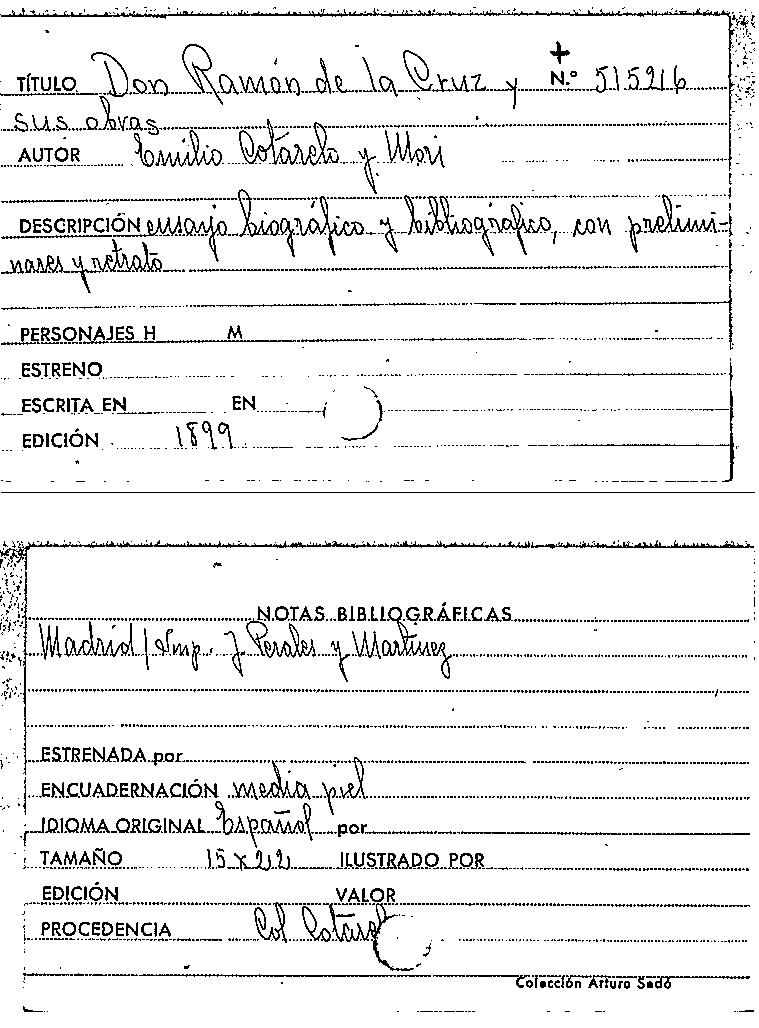 TÍTULO Don Ramón de la Cruz y N.º 515216
sus obras
AUTOR Emilio Cotarelo y Mori
DESCRIPCIÓN ensayo biográfico y bibliográfico, con prelimi-
nares y retrato
PERSONAJES H M
ESTRENO
ESCRITA EN EN
EDICIÓN 1899
NOTAS BIBLIOGRÁFICAS
Madrid / Imp. J Perales y Martínez
ESTRENADA por
ENCUADERNACIÓN media piel
IDIOMA ORIGINAL Español por
TAMAÑO 15 x 22 ILUSTRADO POR
EDICIÓN VALOR
PROCEDENCIA Col
Colección Arturo Sedó